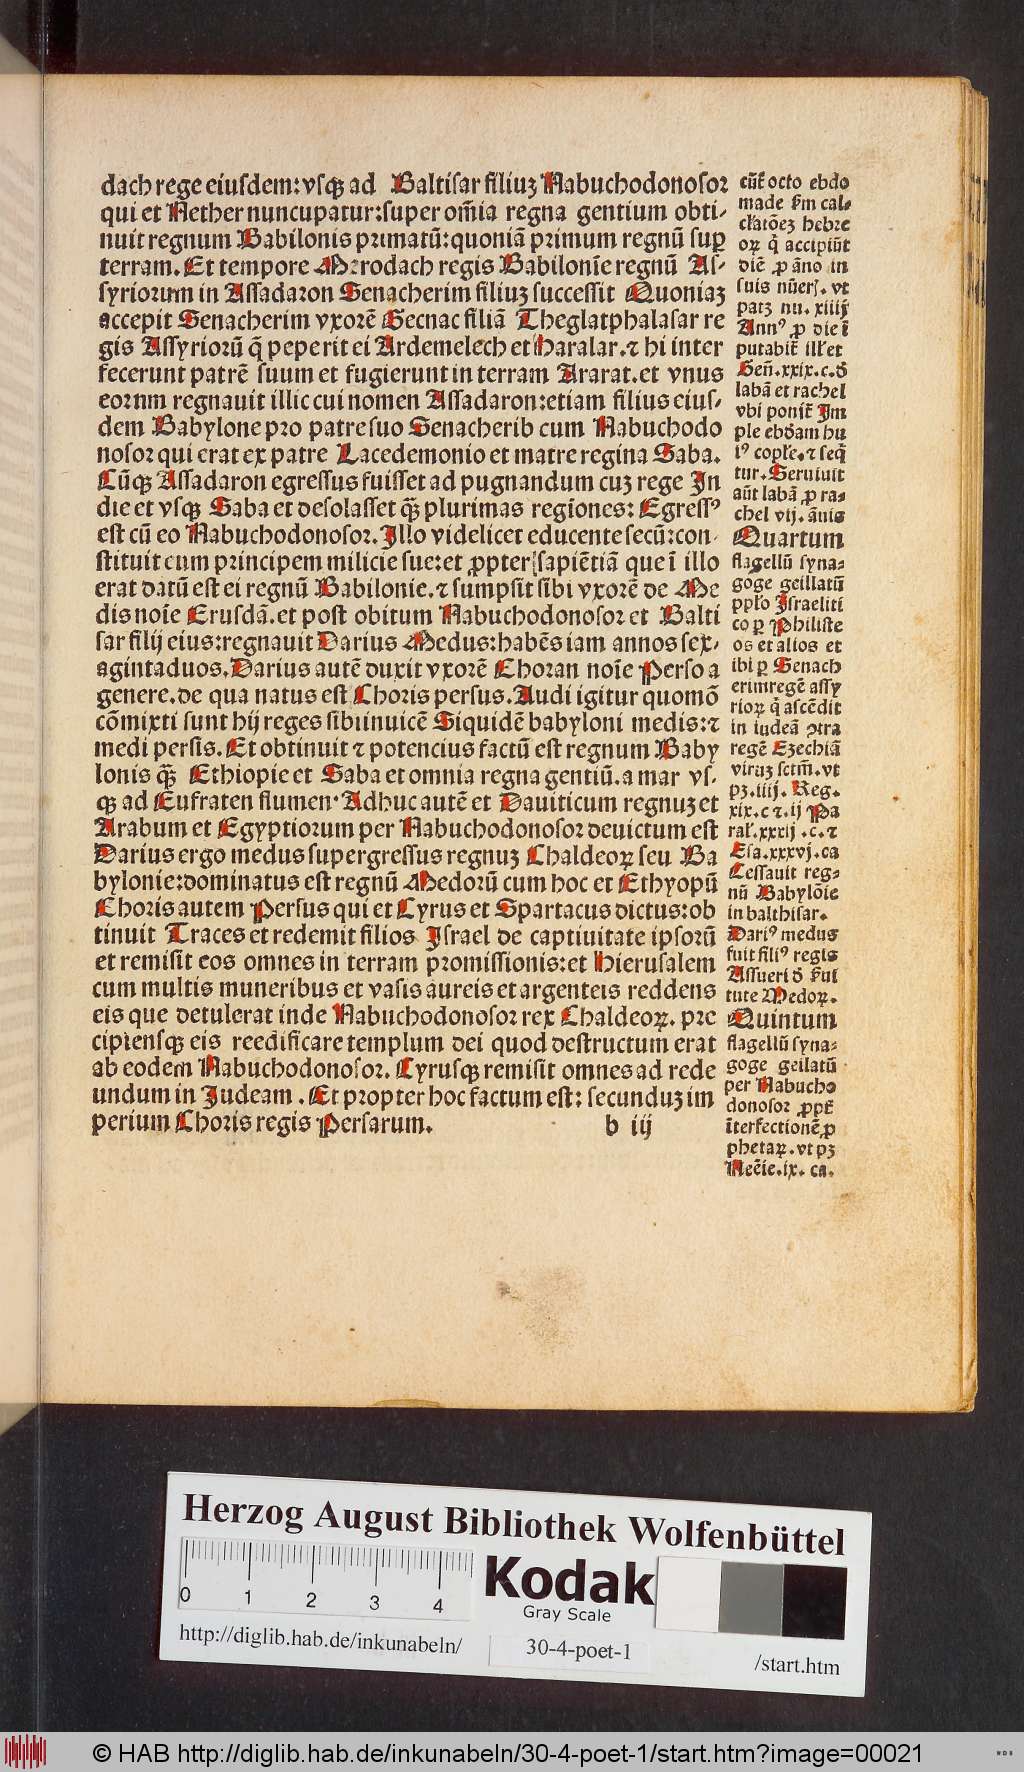 dach rege eiusdem: vsqꝫ ad Baltisar filiuꝫ Nabuchodonosor
qui et Nether nuncupatur: super om̄ia regna gentium obti-
nuit regnum Babilonis primatū: quoniā primum regnū suꝑ
terram. Et tempore Merodach regis Babilonīe regnū As-
syriorum in Assadaron Senacherim filiuꝫ successit Quoniaꝫ
accepit Senacherim vxorē Gecnac filiā Theglatphalasar re
gis Assyriorū q̄ peperit ei Ardemelech et Haralar. ⁊ hi inter
fecerunt patrē suum et fugierunt in terram Ararat. et vnus
eornm regnauit illic cui nomen Assadaron: etiam filius eius-
dem Babylone pro patre suo Senacherib cum Nabuchodo
nosor qui erat ex patre Lacedemonio et matre regina Saba.
Cūqꝫ Assadaron egressus fuisset ad pugnandum cuꝫ rege In
die et vsqꝫ Saba et desolasset qꝫ̄ plurimas regiones: Egressꝰ
est cū eo Nabuchodonosor. Illo videlicet educente secū: con-
stituit eum principem milicie sue: et ꝓpter sapiētiā que ī illo
erat datū est ei regnū Babilonie. ⁊ sumpsit sibi vxorē de Me
dis noīe Erusdā. et post obitum Nabuchodonosor et Balti
sar filij eius: regnauit Darius Medus: habēs iam annos sex-
agintaduos. Darius autē duxit vxorē Choran noīe Perso a
genere. de qua natus est Choris persus. Audi igitur quomō
cōmixti sunt hij reges sibiinuicē Siquidē babyloni medis: ⁊
medi persis. Et obtinuit ⁊ potencius factū est regnum Baby
lonis qꝫ̄ Ethiopie et Saba et omnia regna gentiū. a mar vs-
qꝫ ad Eufraten flumen. Adhuc autē et Dauiticum regnuꝫ et
Arabum et Egyptiorum per Nabuchodonosor deuictum est
Darius ergo medus supergressus regnuꝫ Chaldeoꝝ seu Ba
bylonie: dominatus est regnū Medorū cum hoc et Ethyopū
Choris autem Persus qui et Cyrus et Spartacus dictus: ob
tinuit Traces et redemit filios Israel de captiuitate ipsorū
et remisit eos omnes in terram promissionis: et Hierusalem
cum multis muneribus et vasis aureis et argenteis reddens
eis que detulerat inde Nabuchodonosor rex Chaldeoꝝ. pre
cipiensqꝫ eis reedificare templum dei quod destructum erat
ab eodem Nabuchodonosor. Cyrusqꝫ remisit omnes ad rede
undum in Judeam. Et propter hoc factum est: secunduꝫ im
perium Choris regis Persarum.
b iij
octo ebdo
made cal-
hebre
oꝝ q̄ accipiūt
diē ꝓ āno in
suis vt
patꝫ nu. xiiij
Annꝰ ꝓ die ī
et
Geñ. xxix. c.
labā et rachel
vbi Im
ple hu
⁊
tur. Seruiuit
labā ꝓ ra-
chel vij. ānis
Quartum
flagellū syna-
goge geillatū
Israeliti
co ꝑ Philiste
os et alios et
ibi ꝑ Senach
erimregē assy
rioꝝ q̄ ascēdit
in iudeā ɔtra
regē Ezechiā
viruꝫ vt
pꝫ. iiij. Reg.
xix. c ⁊. ij Pa
xxxij. c. ⁊
Esa. xxxvj. ca
Cessauit reg-
nū Babylōie
in balthisar.
Dariꝰ medus
fuit filiꝰ regis
Assueri
tute Medoꝝ.
Quintum
flagellū syna-
goge geilatū
per Nabucho
donosor
īterfectionē ꝓ
phetaꝝ. vt pꝫ
Neēie. ix. ca.
Herzog August Bibliothek Wolfenbüttel
0 1 2 3 4
Kodak
Gray Scale
http://diglib.hab.de/inkunabeln/
30-4-poet-1
/start.htm
© HAB http://diglib.hab.de/inkunabeln/30-4-poet-1/start.htm?image=00021